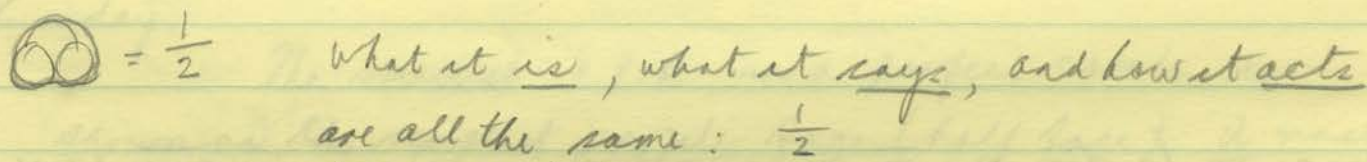 = 1/2 What it is, what it says, and how it acts
are all the same: 1/2